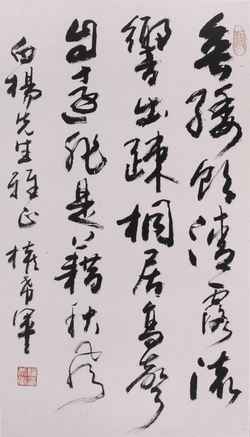 垂緌飲清露流
響出疎桐居高聲
自遠非是藉秋風
白楊先生雅正 權希軍